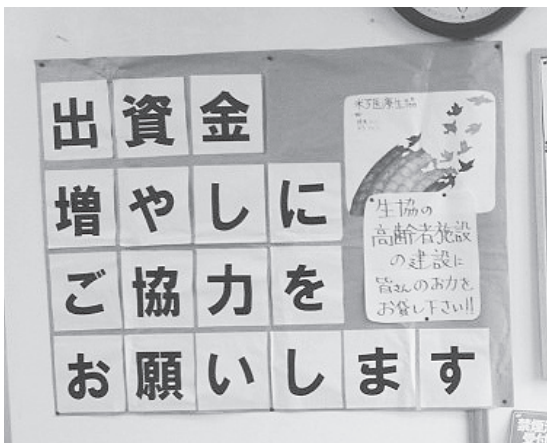 出資金
増やしに
ご協力を
お願いします
医療生協
生協の
高齢者施設
の建設に
皆さんのお力を
お貸し下さい!!
禁煙